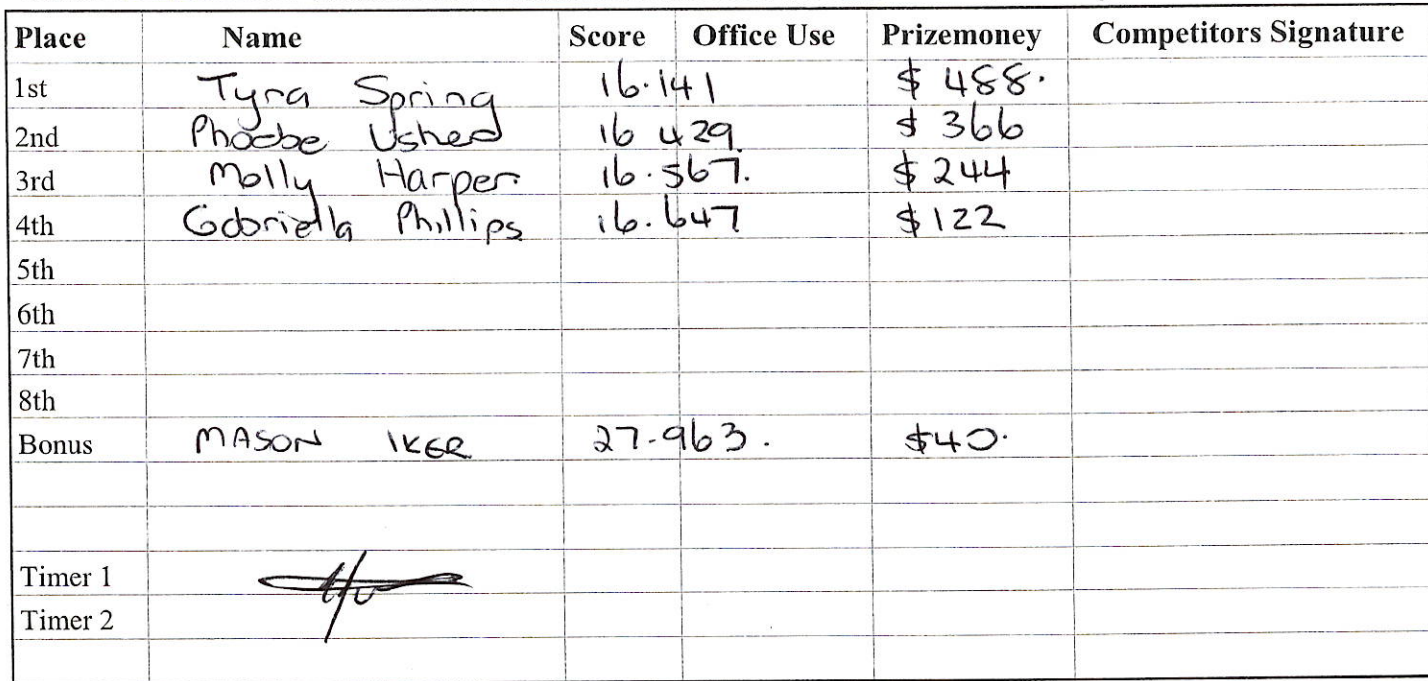 Place Name Score Office Use Prizemoney Competitors Signature
1st Tyra Spring 16.141 $ 488.
2nd Phoebe 16 429. $ 366
3rd Molly Harper 16.567. $ 244
4th Gabriella Phillips 16.647 $ 122
5th
6th
7th
8th
Bonus MASON IKER 27.963. $40.
Timer 1
Timer 2